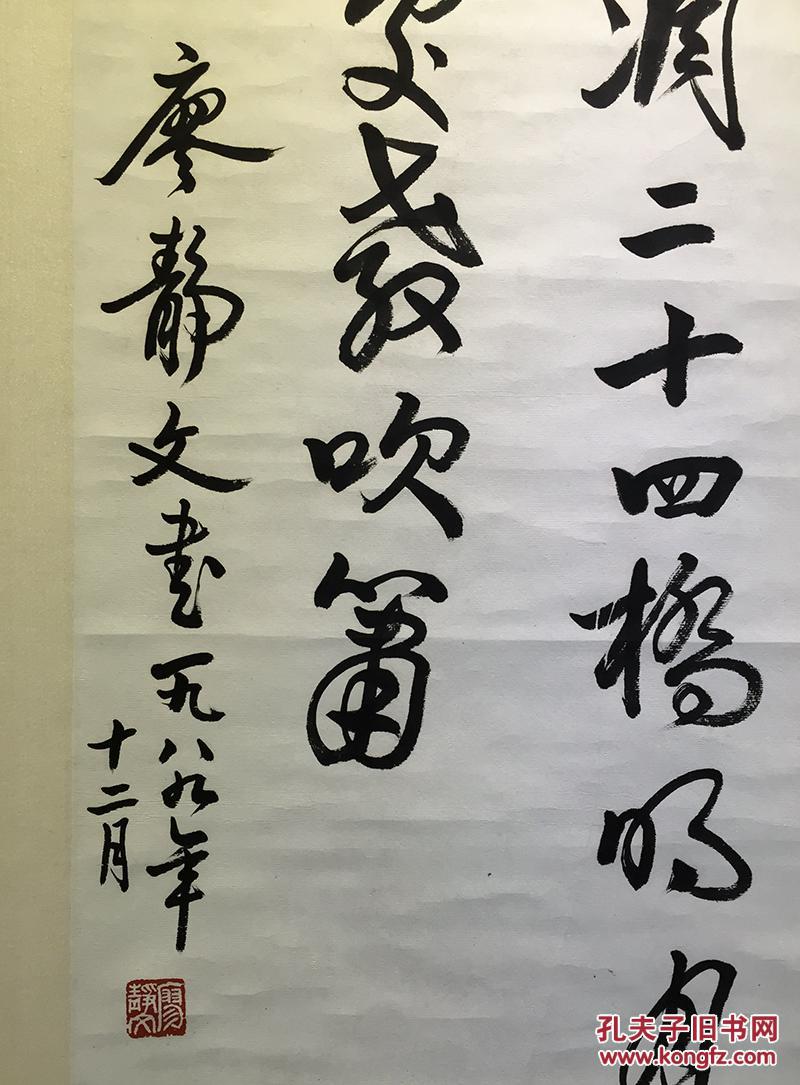 凋二十四橋明月
處教吹簫
廖靜文書一九八九年
十二月
廖靜文
孔夫子旧书网
www.kongfz.com